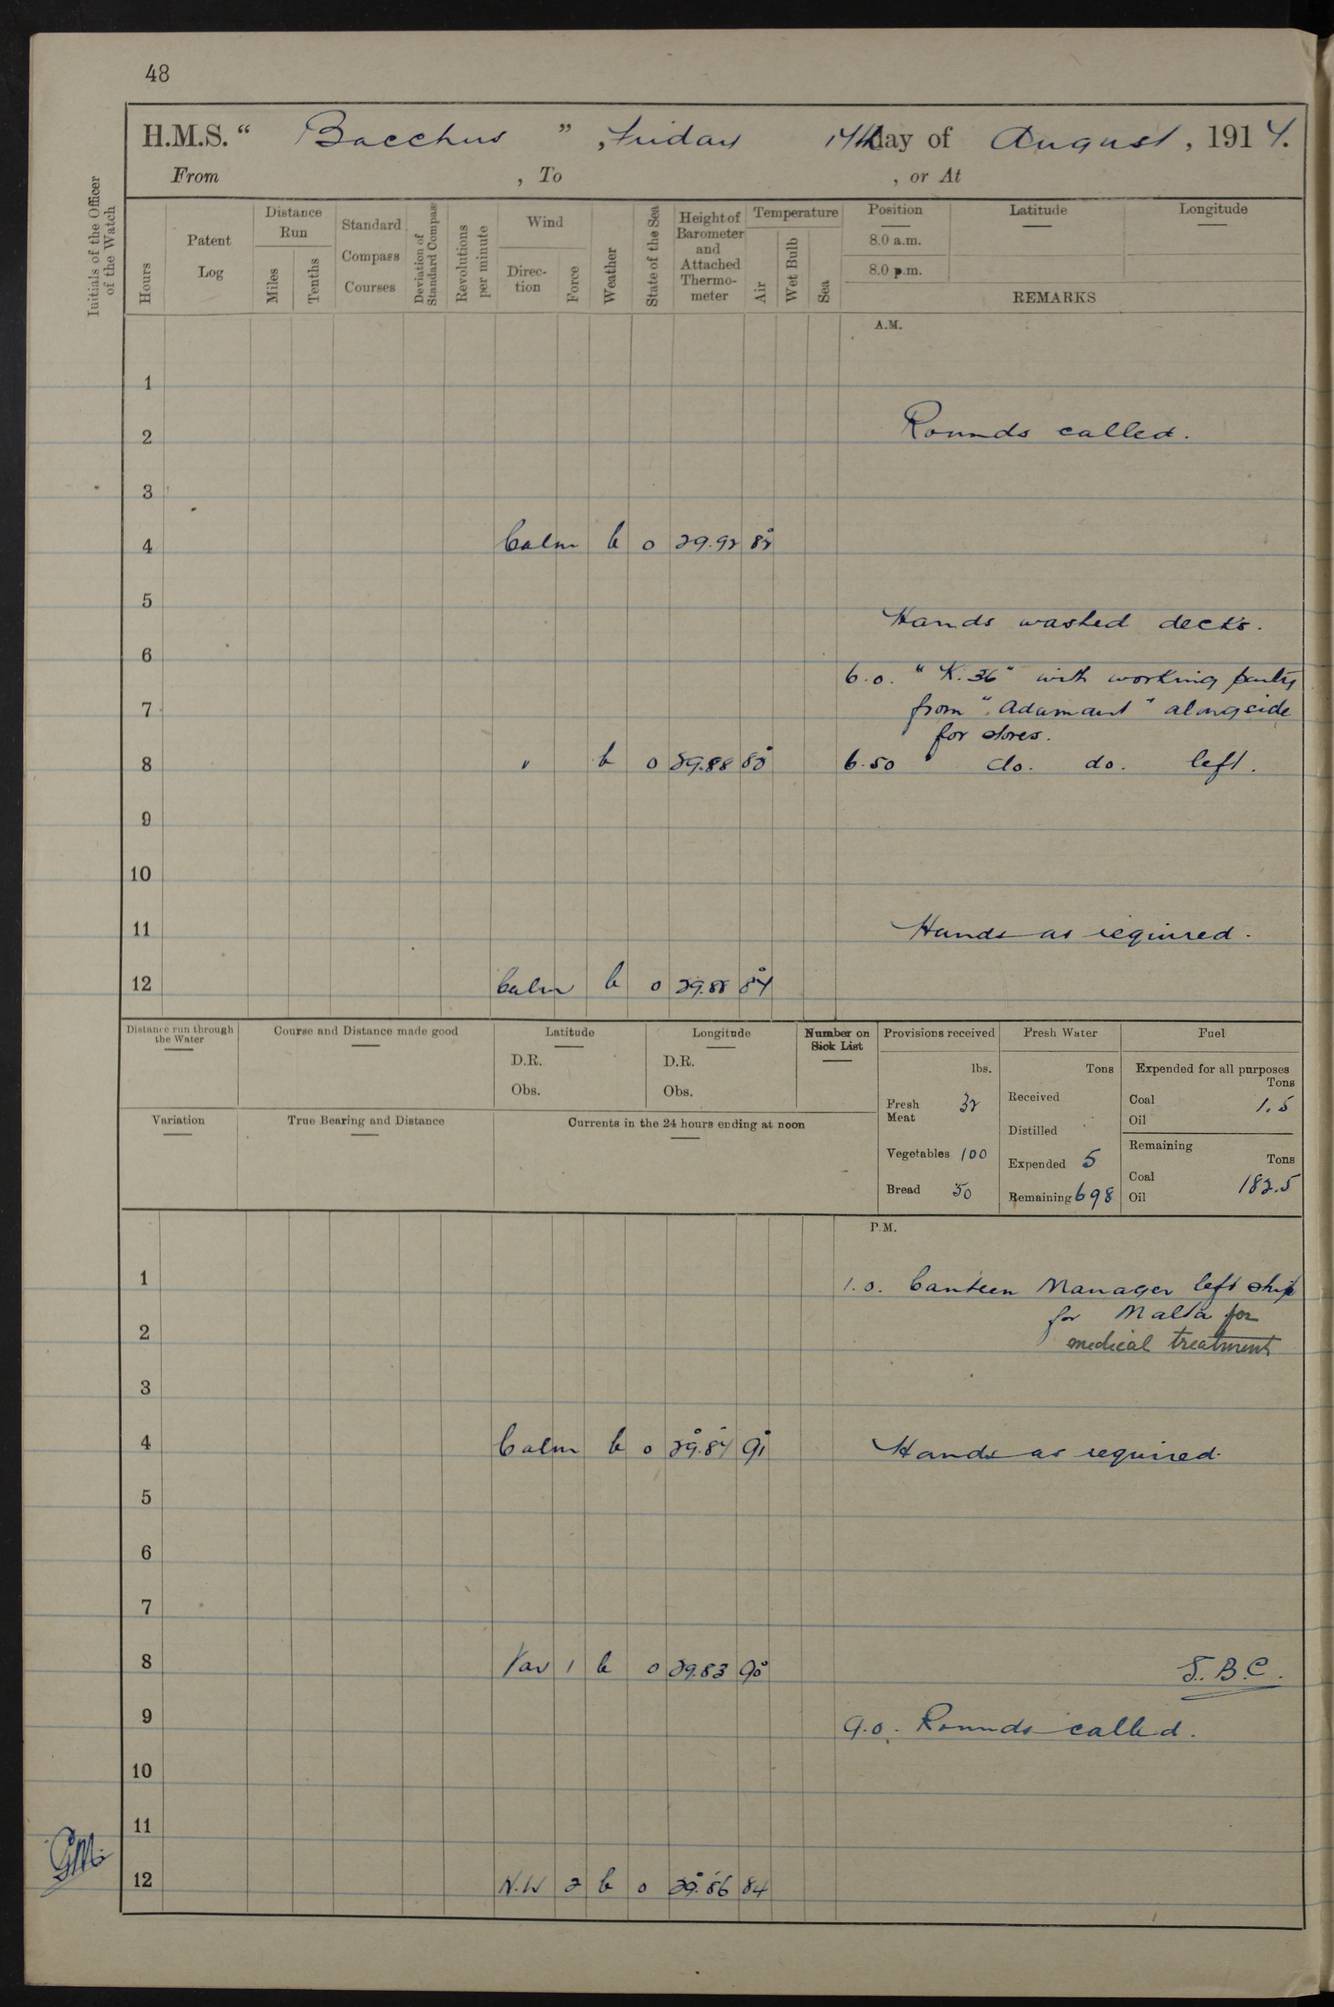 48
H.M.S. “ Bacchus ” , Friday 14th day of August , 1914.
From , To , or At
Initials of the Officer of the Watch
Hours
Patent Log
Distance Run
Miles
Tenths
Standard Compass Courses
Deviation of Standard Compass
Revolutions per minute
Wind
Direction
Force
Weather
State of the Sea
Height of Barometer and Attached Thermometer
Temperature
Air
Wet Bulb
Sea
Position
8.0 a.m.
8.0 p.m.
Latitude
Longitude
REMARKS
A.M.
1
2 Rounds called.
3
4 Calm b 0 29.92 82°
5 Hands washed decks.
6
6.0. "K. 36" with working party
7 from "Adamant" alongside
for stores.
8 " b 0 29.88 80° 6.50 " do. do. left.
9
10
11 Hands as required.
12 Calm b 0 29.88 84°
Distance run through the Water
Course and Distance made good
Latitude
D.R.
Obs.
Longitude
D.R.
Obs.
Number on Sick List
Provisions received
lbs.
Fresh Meat 32
Vegetables 100
Bread 50
Fresh Water
Tons
Received
Distilled
Expended 5
Remaining 698
Fuel
Expended for all purposes
Tons
Coal 1.5
Oil
Remaining
Tons
Coal 182.5
Oil
Variation
True Bearing and Distance
Currents in the 24 hours ending at noon
P.M.
1 1.0. Canteen Manager left ship
for Malta for
2 medical treatment
3
4 Calm b 0 29.84 91° Hands as required.
5
6
7
8 Var 1 b 0 29.83 90° S.B.C.
9 9.0. Rounds called.
10
11
12 N.W 2 b 0 29.86 84